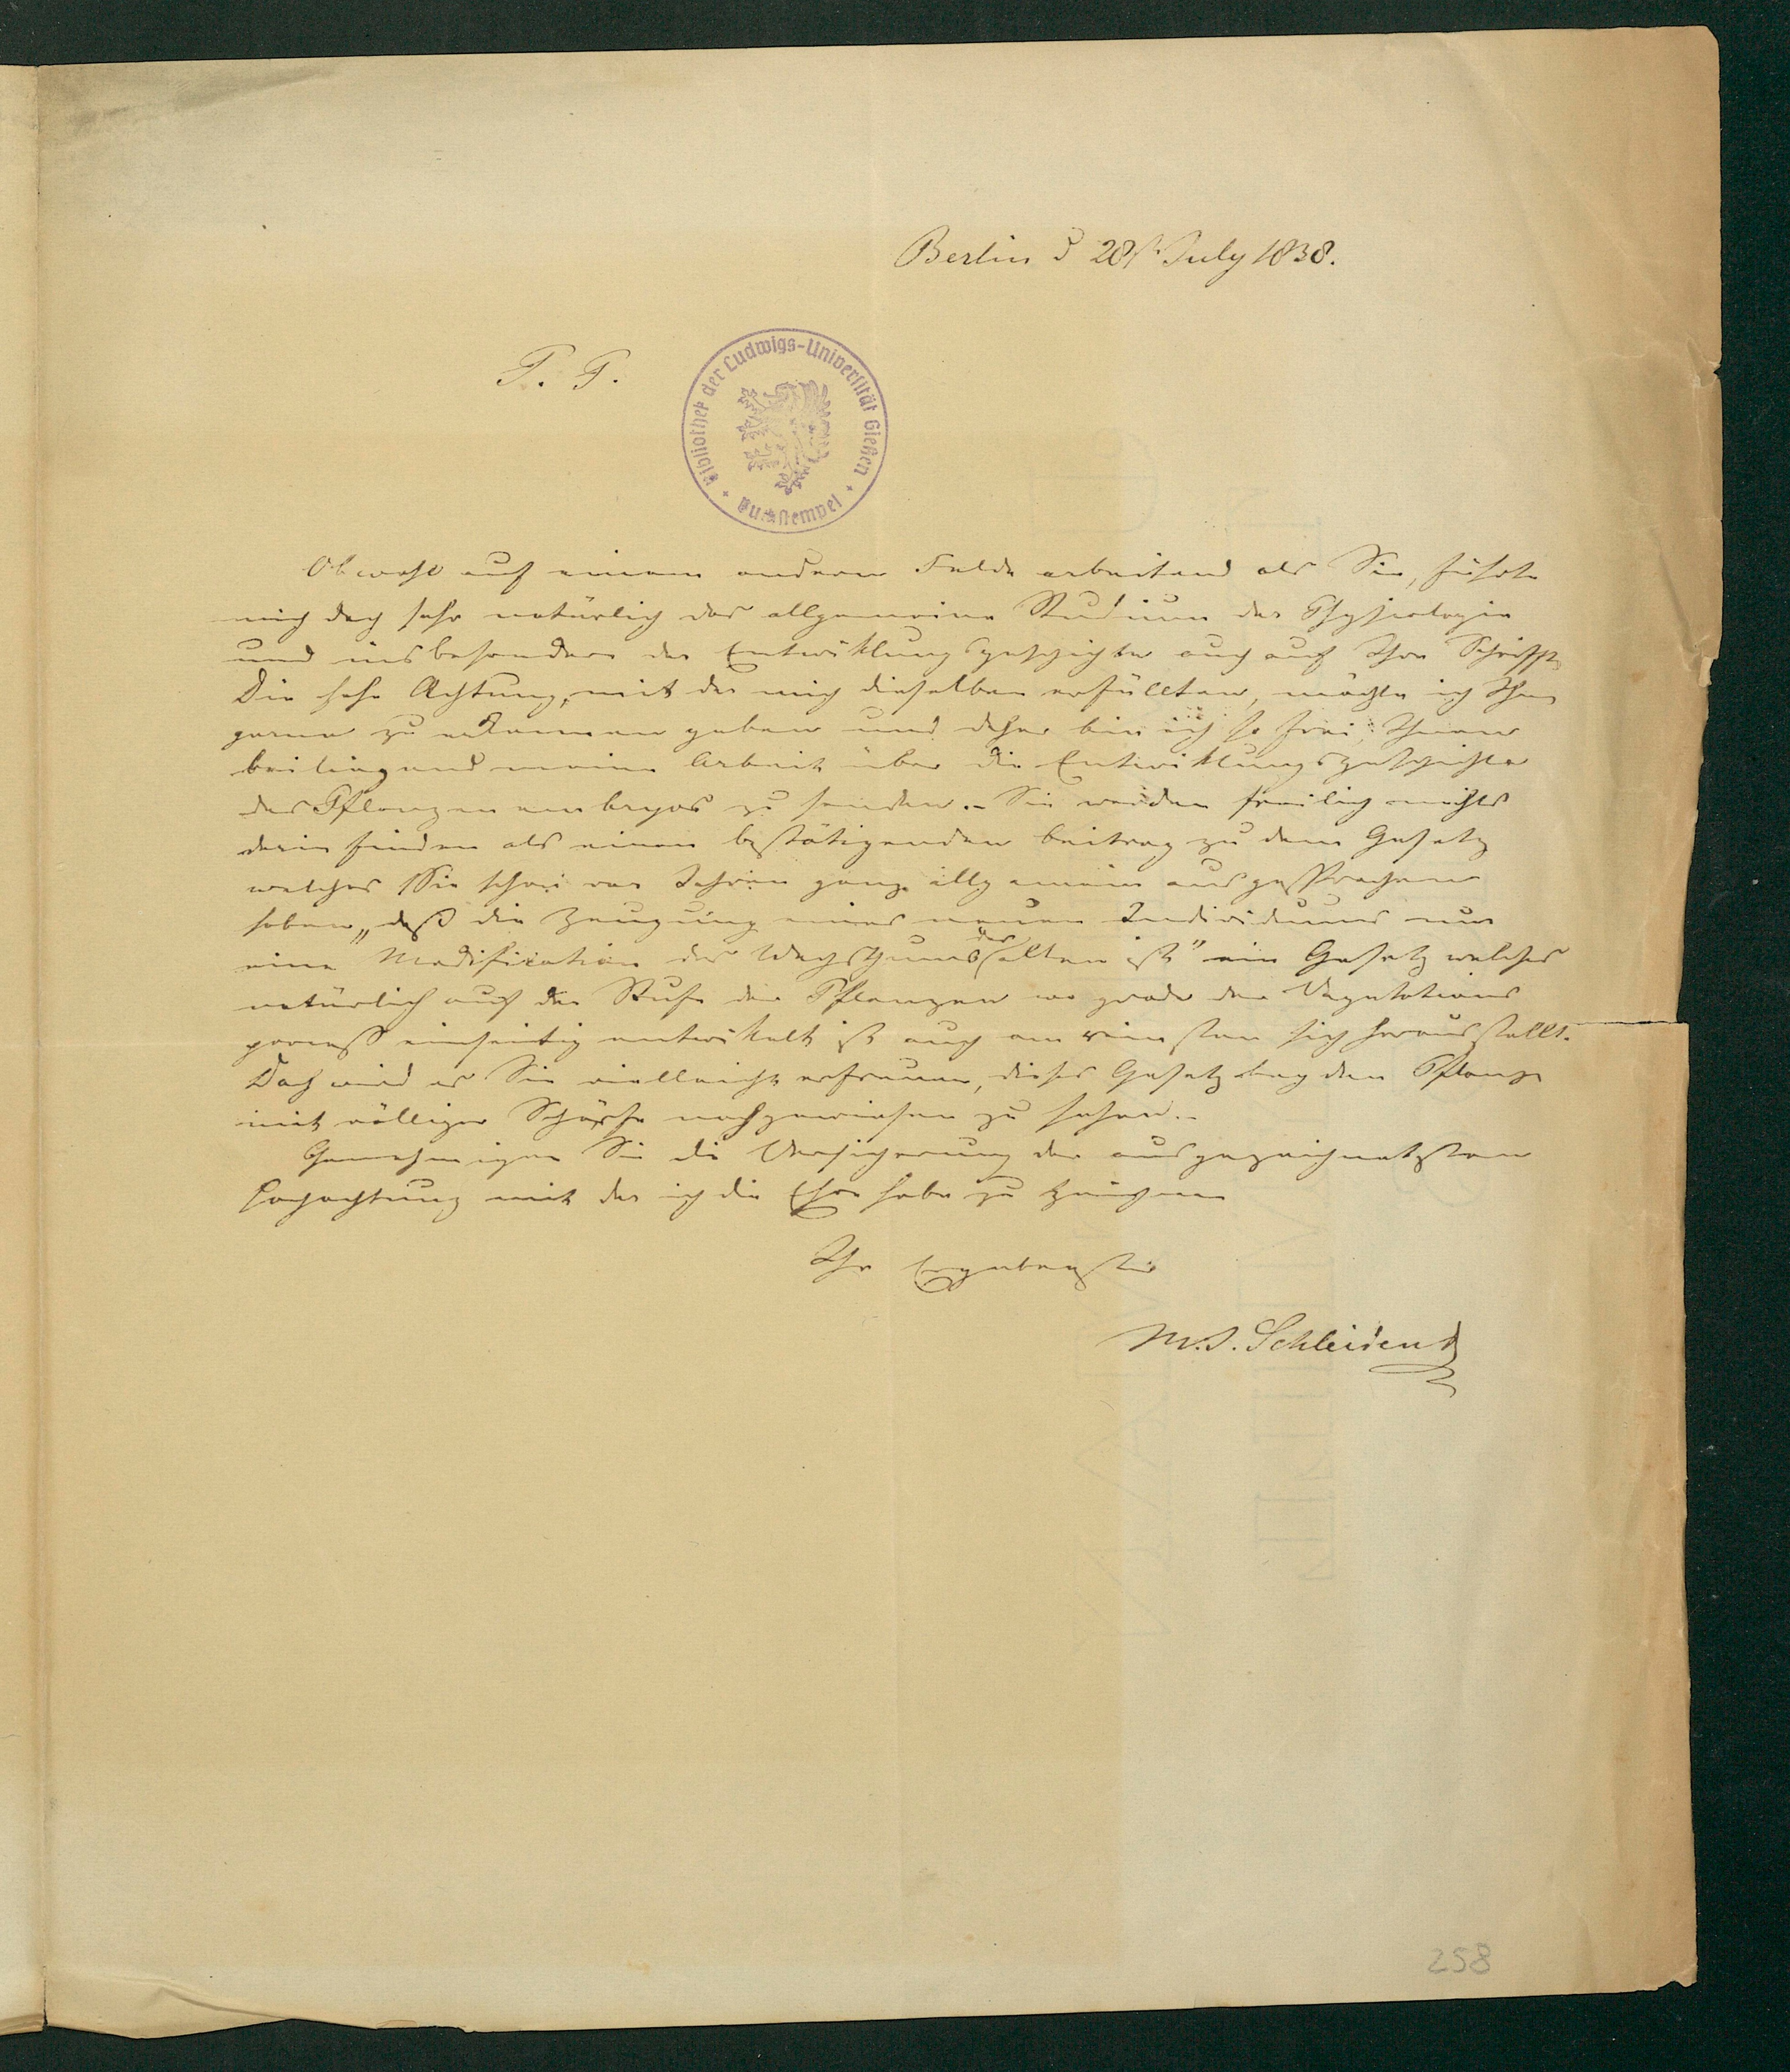 Berlin d 28st July 1838.
P. P.
Bibliothek der Ludwigs-Universität Gießen
Obwohl auf einem andern Felde arbeitend als Sie, führte
mich doch sehr natürlich das allgemeine Studium der Physiologie
und insbesondere der Entwiklungsgeschichte auch auf Ihre Schrifften
Die hohe Achtung, mit der mich dieselben erfüllten, möchte ich Ihnen
gerne zu erkennen geben und daher bin ich so frei, Ihnen
beiliegend meine Arbeit über die Entwiklungsgeschichte
des Pflanzenembryos zu senden. – Sie werden freilich nichts
darin finden als einen bestätigenden Beitrag zu dem Gesetz
welches Sie schon vor Jahren ganz allgemein ausgesprochen
haben „daß die Zeugung eines neuen Individuums nur
eine Modification des Wachsthums des alten ist" ein Gesetz welches
natürlich auf der Stufe der Pflanzen wo grade der Vegetations
process einseitig entwikelt ist auch am reinsten sich herausstellt.
Doch wird es Sie vielleicht erfreuen, dieses Gesetz bey den Pflanzen
mit völliger Schärfe nachgewiesen zu sehen. –
Genehmigen Sie die Versicherung der ausgezeichnetsten
Hochachtung mit der ich die Ehre habe zu zeichnen
Ihr Ergebenster
M. J. Schleiden
258